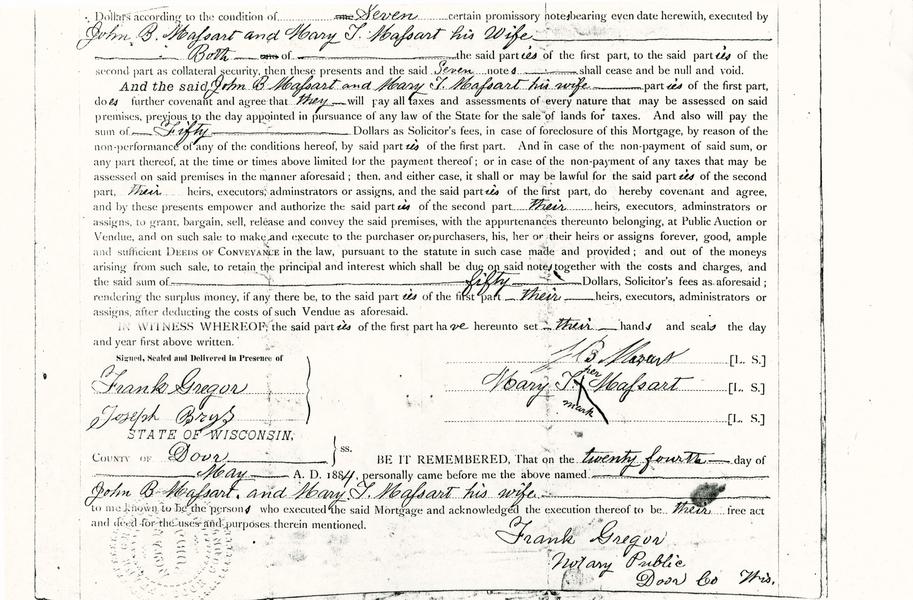 Dollars according to the condition of Seven certain promissory notes bearing even date herewith, executed by
John B. Massart and Mary T. Massart his Wife
Both of the said parties of the first part, to the said parties of the
second part as collateral security, then these presents and the said Seven notes shall cease and be null and void.
And the said John B Massart and Mary T. Massart his wife parties of the first part,
does further covenant and agree that they will pay all taxes and assessments of every nature that may be assessed on said
premises, previous to the day appointed in pursuance of any law of the State for the sale of lands for taxes. And also will pay the
sum of Fifty Dollars as Solicitor's fees, in case of foreclosure of this Mortgage, by reason of the
non-performance of any of the conditions hereof, by said parties of the first part. And in case of the non-payment of said sum, or
any part thereof, at the time or times above limited for the payment thereof; or in case of the non-payment of any taxes that may be
assessed on said premises in the manner aforesaid; then, and either case, it shall or may be lawful for the said parties of the second
part, their heirs, executors, adminstrators or assigns, and the said parties of the first part, do hereby covenant and agree,
and by these presents empower and authorize the said parties of the second part their heirs, executors, adminstrators or
assigns, to grant, bargain, sell, release and convey the said premises, with the appurtenances thereunto belonging, at Public Auction or
Vendue, and on such sale to make and execute to the purchaser or purchasers, his, her or their heirs or assigns forever, good, ample
and sufficient DEEDS OF CONVEYANCE in the law, pursuant to the statute in such case made and provided; and out of the moneys
arising from such sale, to retain the principal and interest which shall be due on said notes together with the costs and charges, and
the said sum of fifty Dollars, Solicitor's fees as aforesaid;
rendering the surplus money, if any there be, to the said parties of the first part their heirs, executors, administrators or
assigns, after deducting the costs of such Vendue as aforesaid.
IN WITNESS WHEREOF, the said parties of the first part have hereunto set their hands and seals the day
and year first above written.
Signed, Sealed and Delivered in Presence of
J B Massart [L. S.]
her
Frank Gregor Mary T. Massart [L. S.]
mark
Joseph Brys [L. S.]
STATE OF WISCONSIN,
COUNTY OF Door ss. BE IT REMEMBERED, That on the twenty fourth day of
May A. D. 1884, personally came before me the above named
John B Massart, and Mary T. Massart his wife
to me known to be the persons who executed the said Mortgage and acknowledged the execution thereof to be their free act
and deed for the uses and purposes therein mentioned.
Frank Gregor
Notary Public
Door Co Wis.